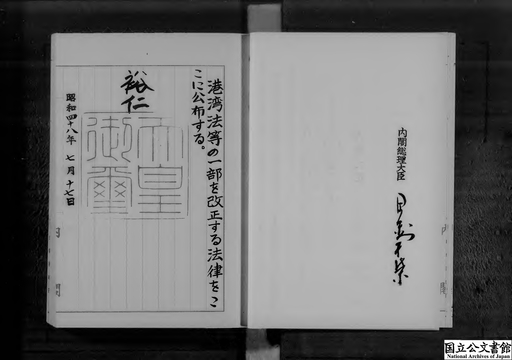 港湾法等の一部を改正する法律をこ
こに公布する。
裕仁
天皇
御璽
昭和四十八年七月十七日
内閣総理大臣
田中角榮
国立公文書館
National Archives of Japan